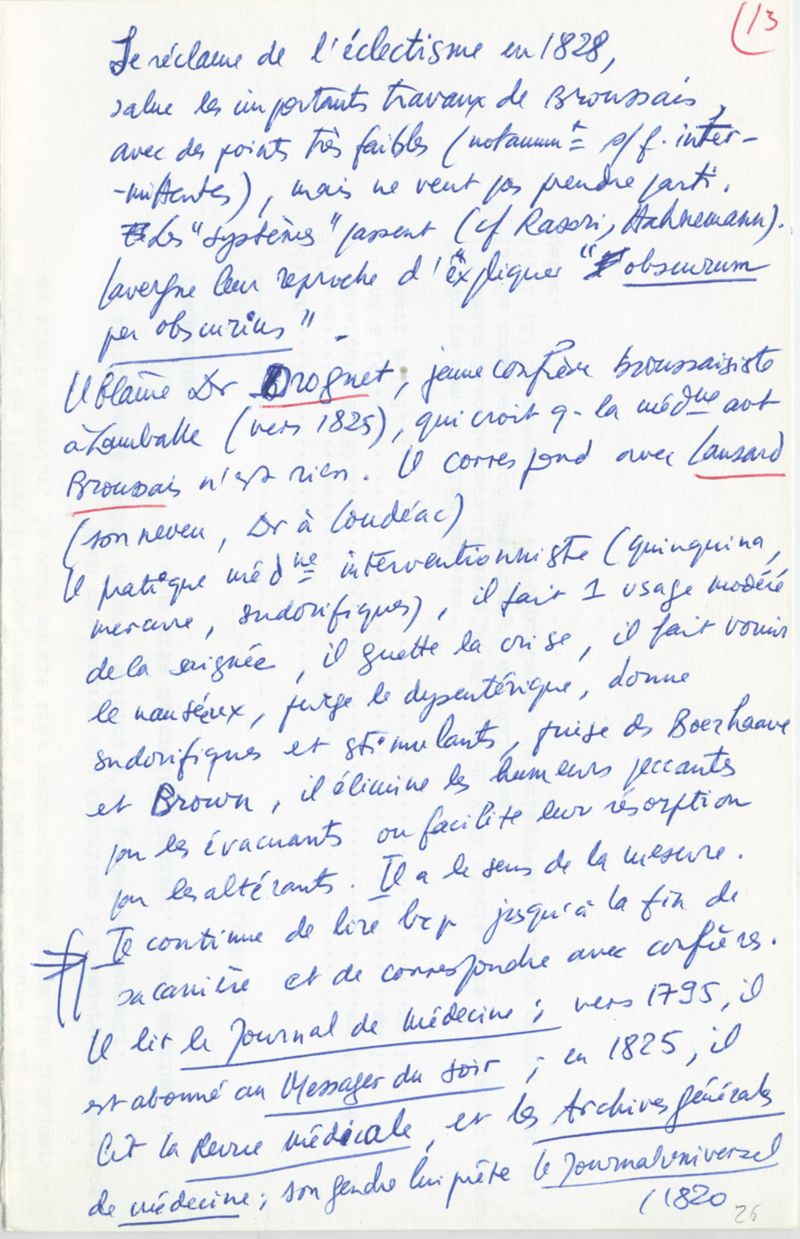 (13
Se réclame de l'éclectisme en 1828,
salue les importants travaux de Broussais,
avec des points très faibles (notammt s/ f. inter-
-mittentes), mais ne veut pas prendre parti.
Les "systèmes" passent (cf Rasori, Hahnemann).
Lavergne leur reproche d'expliquer "obscurum
per obscurius".
Il blâme Dr Drognet, jeune confrère broussaisiste
à Lamballe (vers 1825), qui croit q- la médne avt
Broussais n'est rien. Il correspond avec Lansard
(son neveu, Dr à Loudéac)
Il pratique médne interventionniste (quinquina,
mercure, sudorifiques), il fait 1 usage modéré
de la saignée, il guette la crise, il fait vomir
le nauséeux, purge le dysentérique, donne
sudorifiques et stimulants, puise ds Boerhaave
et Brown, il élimine les humeurs peccantes
par les évacuants ou facilite leur résorption
par les altérants. Il a le sens de la mesure.
Il continue de lire bcp jusqu'à la fin de
sa carrière et de correspondre avec confrères.
Il lit le Journal de Médecine; vers 1795, il
est abonné au Messager du Soir; en 1825, il
lit la Revue médicale, et les Archives générales
de médecine; son gendre lui prête le Journal universel
(1820
26